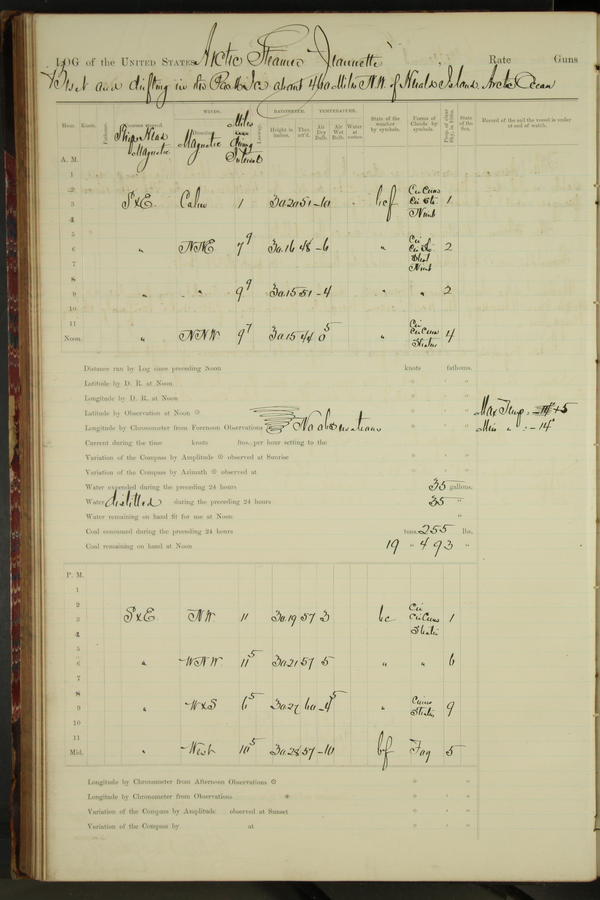 LOG of the UNITED STATES Arctic Steamer Jeannette Rate Guns
Beset and drifting in the Pack Ice about 460 Miles N.W. of Herald Island, Arctic Ocean
WINDS. BAROMETER. TEMPERATURE.
Hour. Knots. Fathoms. Courses steered. Ship's Head Magnetic Direction. Magnetic Miles Leeway. Height in inches. Ther. att'd. Air Dry Bulb. Air Wet Bulb. Water at surface. State of the weather by symbols. Forms of Clouds by symbols. Prop. of clear Sky, in 10ths. State of the Sea. Record of the sail the vessel is under at end of watch.
A. M.
1
2
3 S&E. Calm 1 30.20 51 -10 bcf Cir Cums Cir Str Nimb 1
4
5
6 " NNE 7 9 30.16 48 -6 " Cir Cir Str Nimb 2
7
8
9 " " 9 9 30.15 51 -4 " " 2
10
11
Noon. " NNW 9 7 30.15 44 0 5 " Cir Cir Cum Stratus 4
Distance run by Log since preceding Noon knots fathoms.
Latitude by D. R. at Noon ° ' "
Longitude by D. R. at Noon ° ' "
Latitude by Observation at Noon ° ' " Max Temp. : +5
Longitude by Chronometer from Forenoon Observations No observations ° ' " Min " : -14
Current during the time knots fms. per hour setting to the
Variation of the Compass by Amplitude observed at Sunrise ° ' "
Variation of the Compass by Azimuth observed at ° ' "
Water expended during the preceding 24 hours 35 gallons.
Water distilled during the preceding 24 hours 35 "
Water remaining on hand fit for use at Noon "
Coal consumed during the preceding 24 hours tons. 255 lbs.
Coal remaining on hand at Noon 19 " 493 "
P. M.
1
2
3 S&E. NW 11 30.19 57 3 bc Cir Cir Cums Stratus 1
4
5
6 " WNW 11 5 30.21 57 5 " " 6
7
8
9 " W&S 6 5 30.27 60 -4 5 " Cums Stratus 9
10
11
Mid. " West 10 5 30.28 57 -10 bf Fog 5
Longitude by Chronometer from Afternoon Observations ° ' "
Longitude by Chronometer from Observations ° ' "
Variation of the Compass by Amplitude observed at Sunset ° ' "
Variation of the Compass by at ° ' "